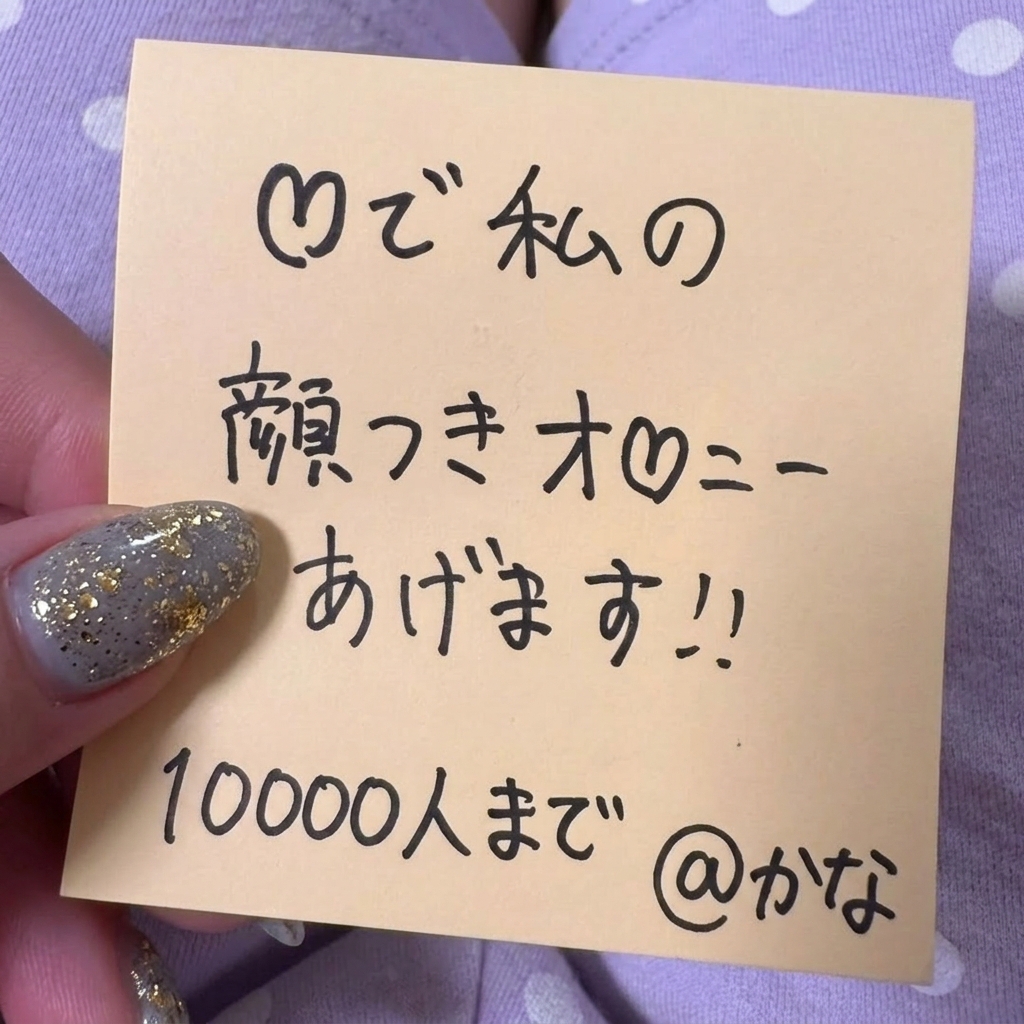 ♡で私の
顔つきオ♡ニー
あげます!!
10000人まで
@かな